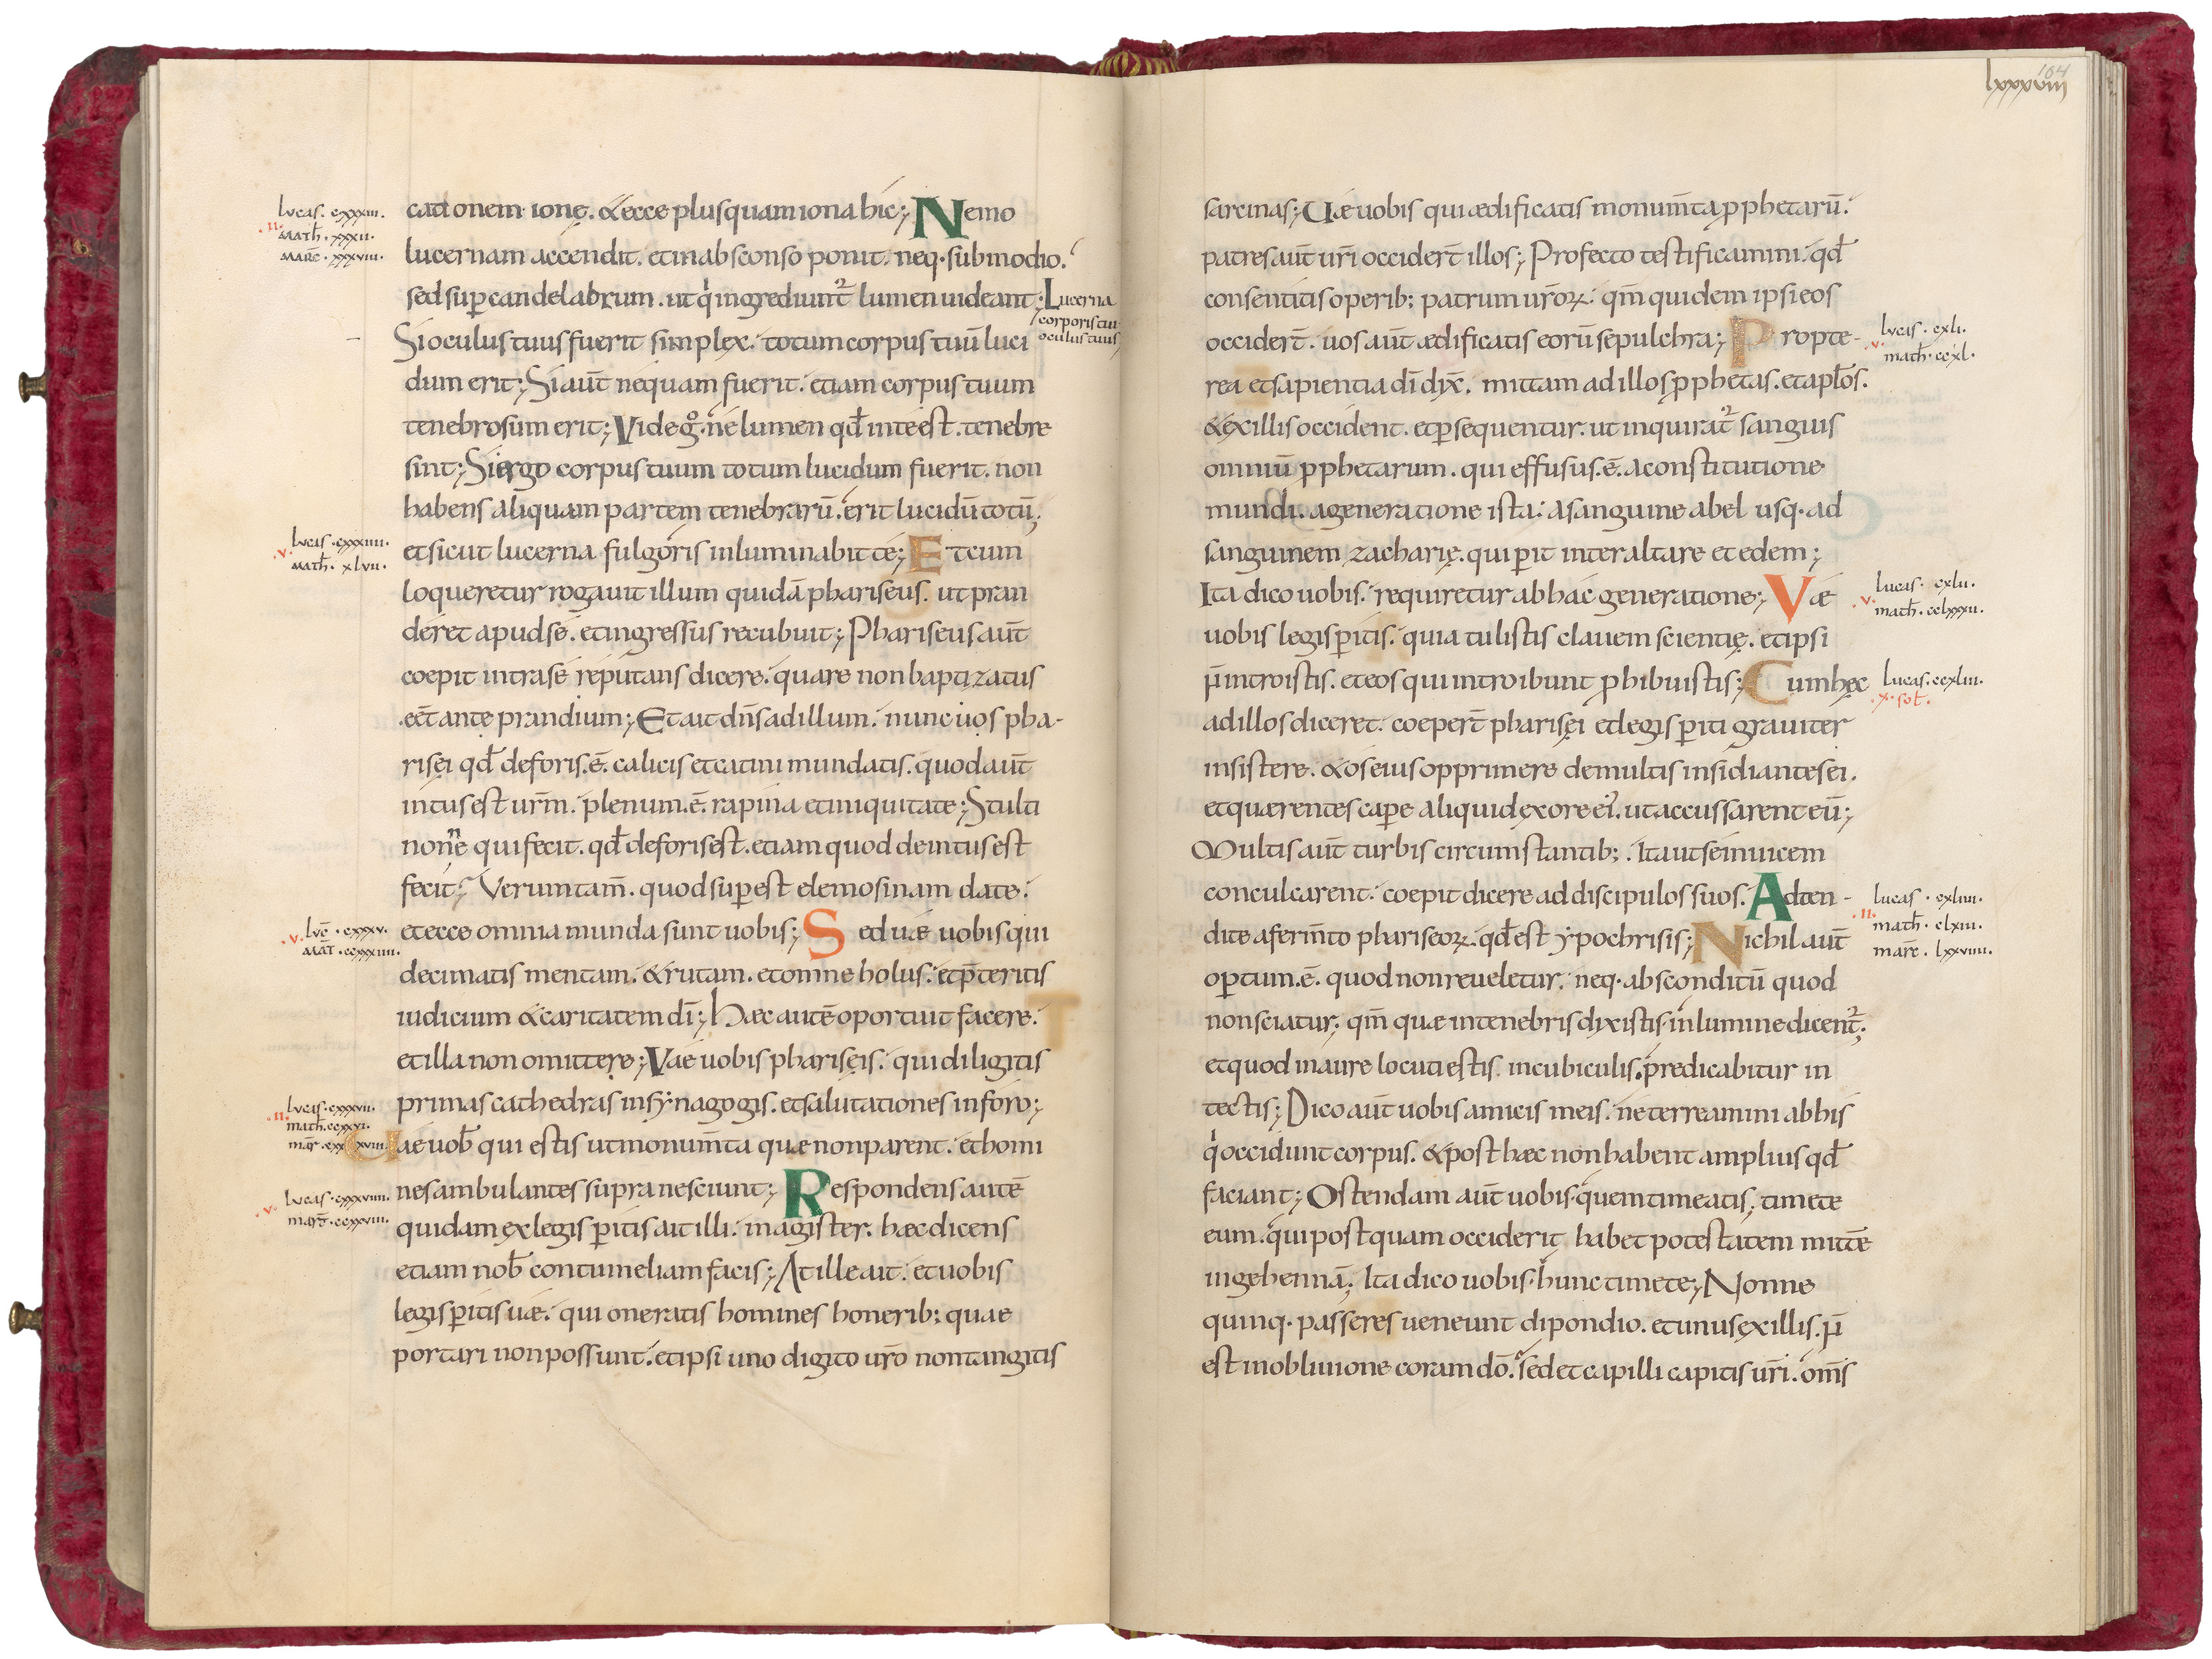 lucas. cxxxiii.
.ii.
math. xxxii.
marc. xxxviii.
cationem ionę. & ecce plus quam iona hic; Nemo
lucernam accendit. et in absconso ponit. neq. sub modio.
sed sup candelabrum. ut qi ingrediunt lumen uideant; Lucerna
corporis tui
oculus tuus
Si oculus tuus fuerit simplex. totum corpus tuū luci
dum erit; Si aut̄ nequam fuerit. etiam corpus tuum
.v.
lucas. cxxxiiii.
math. xlvii.
tenebrosum erit; Vide g̊. ne lumen qd̄ in te est. tenebre
sint; Si ergo corpus tuum totum lucidum fuerit. non
habens aliquam partem tenebrarū. erit lucidū totū;
et sicut lucerna fulgoris inluminabit te; Et cum
loqueretur rogauit illum quidā phariseus. ut pran
deret apud se. et ingressus recubuit; Phariseus aut̄
coepit intra se reputans dicere. quare non baptizatus
eēt ante prandium; Et ait dn̄s ad illum. nunc uos pha-
risęi qd̄ deforis .ē. calicis et catini mundatis. quod aut̄
intus est ur̄m. plenum .ē. rapina et iniquitate; Stulti
nonne qui fecit. qd̄ deforis est. etiam quod deintus est
fecit; Verum tam̄. quod sup est elemosinam date.
.v.
luc̄. cxxxv.
mat̄. ccxxxiiii.
et ecce omnia munda sunt uobis; Sed uae uobis qui
decimatis mentam. & rutam. et omne holus. et p̄teritis
iudicium & caritatem dī; Haec autē oportuit facere.
et illa non omittere; Vae uobis pharisęis. qui diligitis
.ii.
lucas. cxxxvii.
primas cathedras in synagogis. et salutationes in foro;
Uae uob̄ qui estis ut monum̄ta quae non parent. et homi
nes ambulantes supra nesciunt; Respondens autē
.v.
lucas. cxxxviiii.
quidam ex legis p̄itis ait illi. magister. haec dicens
etiam nob̄ contumeliam facis; At ille ait. et uobis
legis p̄itis uae. qui oneratis homines honerib; quae
portari non possunt. et ipsi uno digito ur̄o non tangitis
104
lxxxviii
sarcinas; Uae uobis qui aedificatis monum̄ta p̱phetarū.
patres aut̄ ur̄i occider̄t illos; Profecto testificamini qd̄
consentitis operib; patrum ur̄oꝝ. qm̄ quidem ipsi eos
occider̄t. uos aut̄ aedificatis eorū sepulchra; Propte-
.v.
lucas. cxli.
math. ccxl.
rea et sapientia dī dix̄. mittam ad illos p̱phetas. et apl̄os.
& ex illis occident. et p̱sequentur. ut inquirat sanguis
omniū p̱phetarum. qui effusus .ē. a constitutione
mundi. a generatione ista. a sanguine abel usq. ad
sanguinem zacharię. qui p̱it inter altare et edem;
Ita dico uobis. requiretur ab hac generatione; Vae
.v.
lucas. cxlii.
math. cclxxxii.
uobis legis p̄itis. quia tulistis clauem scientię. et ipsi
n̄ introistis. et eos qui introibunt p̱hibuistis; Cum hęc
lucas. ccxliii.
.x. sol̄.
ad illos diceret. coeper̄t pharisęi et legis p̄iti grauiter
insistere. & os eius opprimere de multis insidiantes ei.
et quaerentes cap̱e aliquid ex ore ei'. ut accussarent eū;
Multis aut̄ turbis circumstantib; Ita ut se inuicem
conculcarent. coepit dicere ad discipulos suos. Adten-
.ii.
lucas. cxliiii.
math. clxiii.
marc̄. lxxviiii.
dite a ferm̄to phariseoꝝ. qd̄ est ypochrisis; Nichil aut̄
op̱tum .ē. quod non reueletur. neq. absconditū quod
non sciatur. qm̄ quae in tenebris dixistis. in lumine dicent;
et quod in aure locuti estis in cubiculis. predicabitur in
tectis; Dico aut̄ uobis amicis meis. ne terreamini ab his
qi occidunt corpus. & post haec non habent amplius qd̄
faciant; Ostendam aut̄ uobis quem timeatis; timete
eum. qui postquam occiderit habet potestatem mitte
in gehennā; Ita dico uobis. hunc timete; Nonne
quinq. passeres ueneunt dipondio. et unus ex illis. n̄
est in obliuione coram dō. sed et capilli capitis ur̄i. om̄s